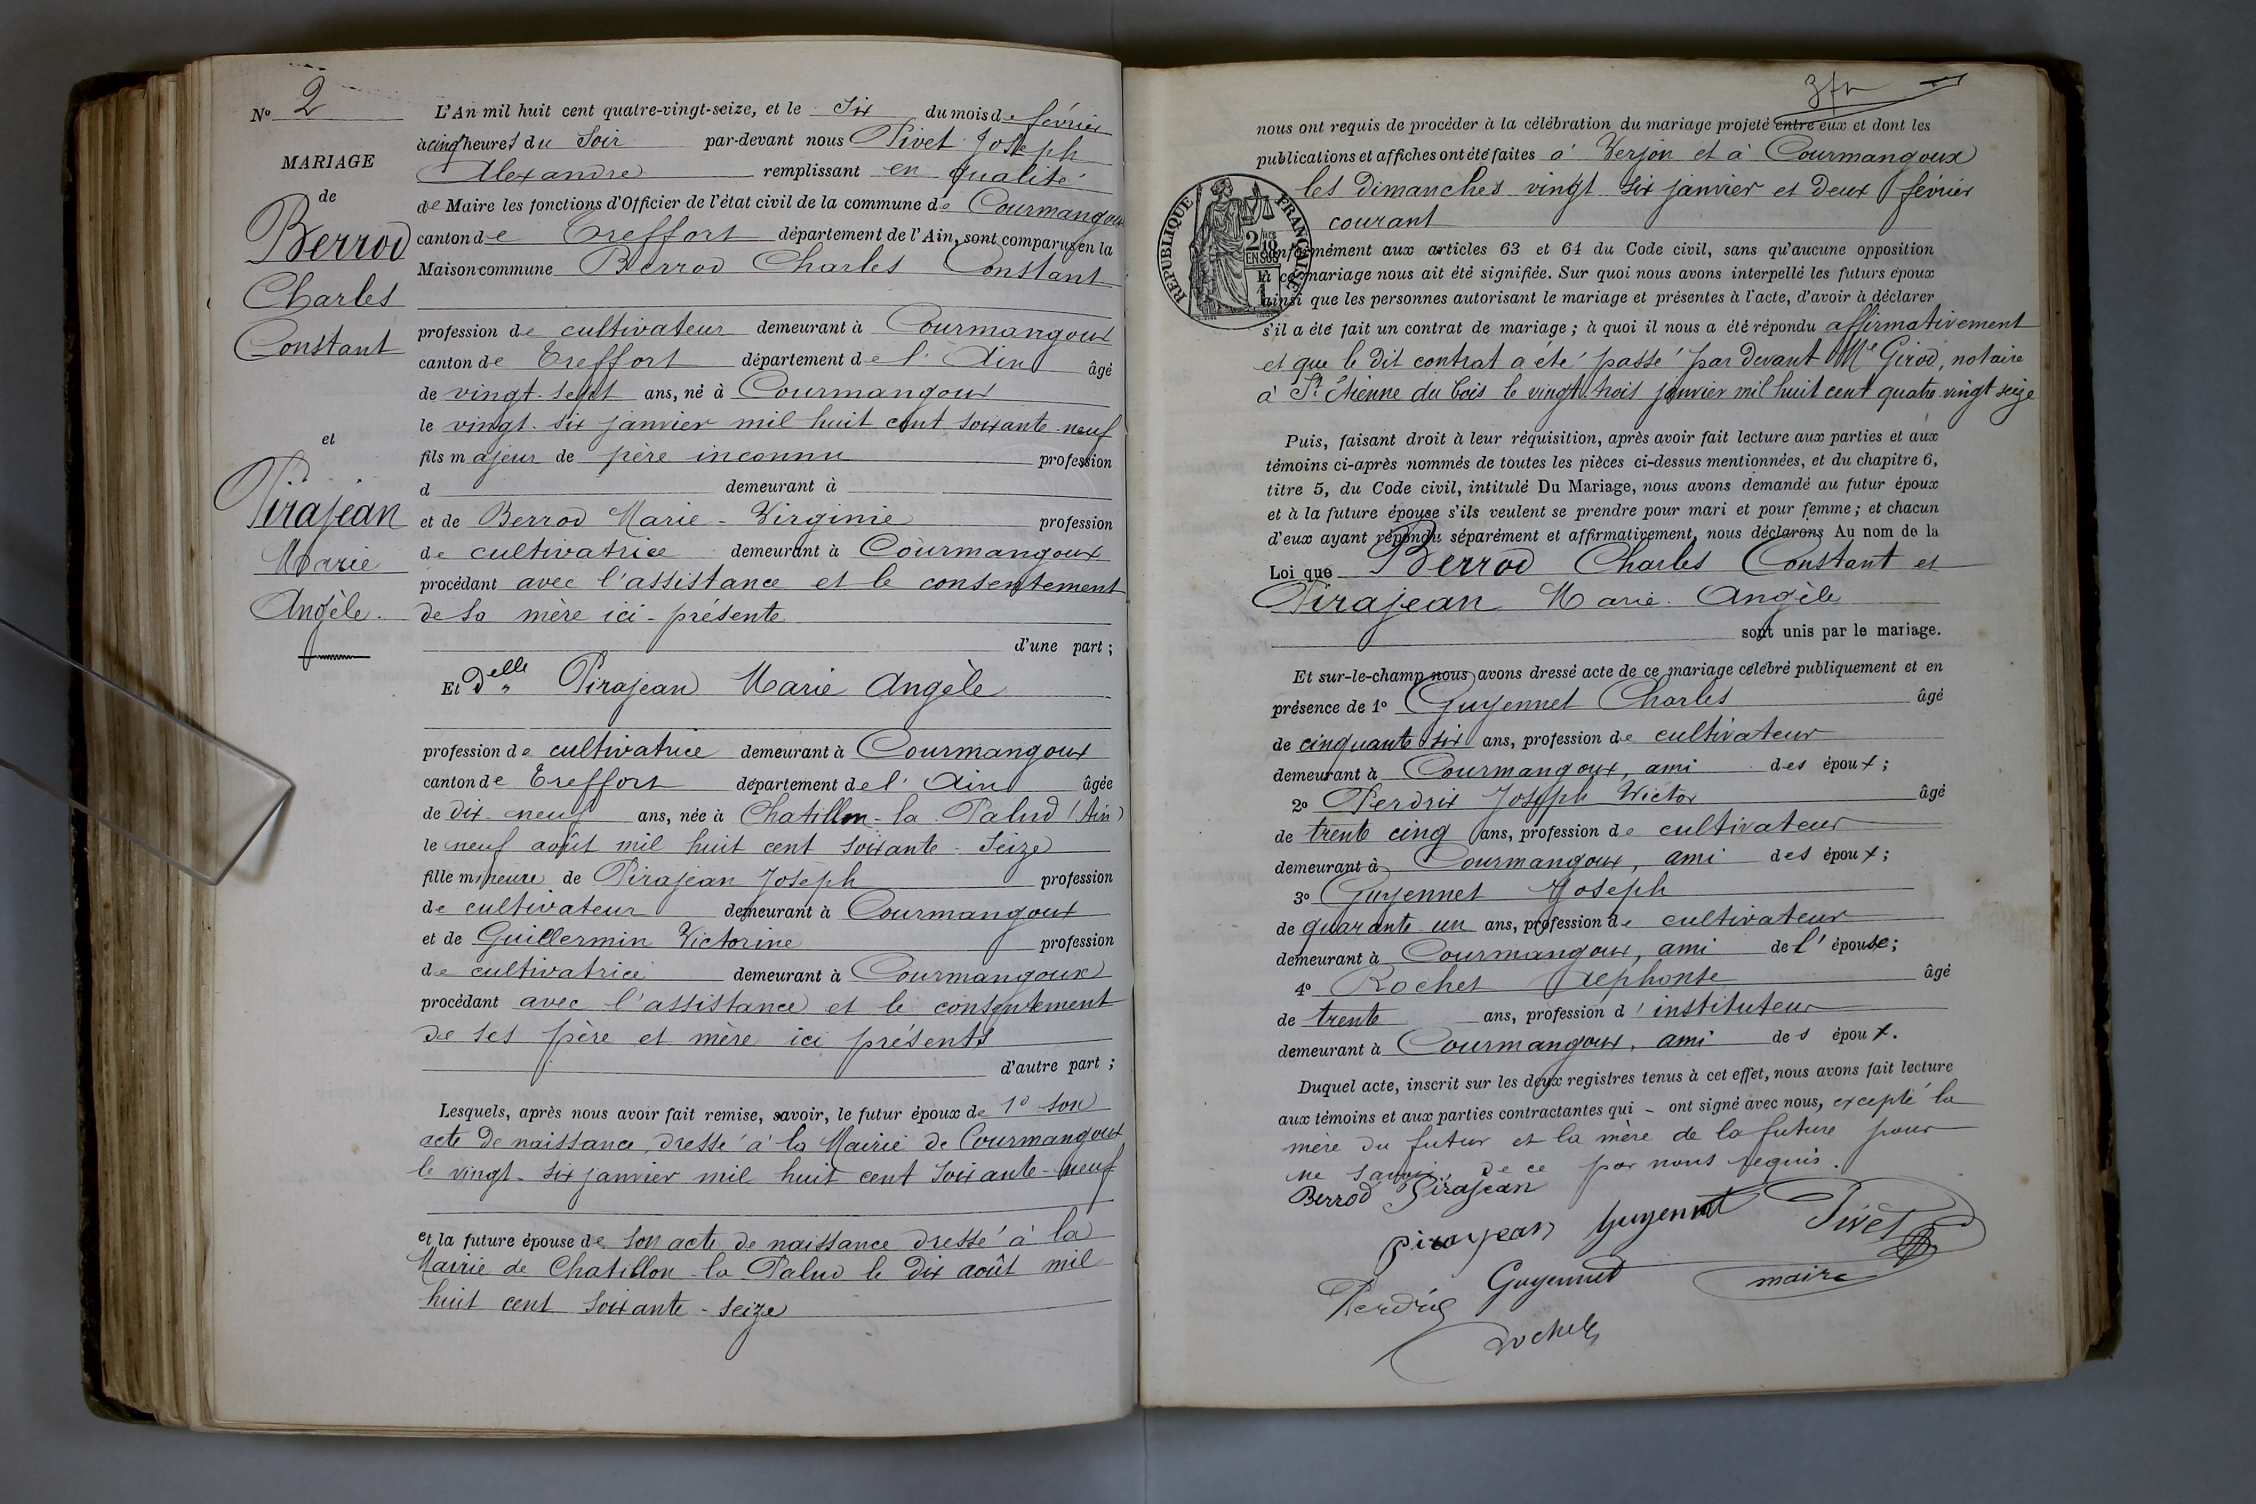 Nº 2
MARIAGE
de
Berrod
Charles
Constant
et
Pirajean
Marie
Angèle.
L'An mil huit cent quatre-vingt-seize, et le six du mois de février
à cinq heures du soir par-devant nous Pivet Joseph
Alexandre remplissant en qualité
de Maire les fonctions d'Officier de l'état civil de la commune de Courmangoux
canton de Treffort département de l'Ain, sont comparus en la
Maison commune Berrod Charles Constant
profession de cultivateur demeurant à Courmangoux
canton de Treffort département de l'Ain âgé
de vingt-sept ans, né à Courmangoux
le vingt-six janvier mil huit cent soixante-neuf
fils majeur de père inconnu profession
d demeurant à
et de Berrod Marie-Virginie profession
de cultivatrice demeurant à Courmangoux
procédant avec l'assistance et le consentement
de sa mère ici-présente
d'une part ;
Et Delle Pirajean Marie Angèle
profession de cultivatrice demeurant à Courmangoux
canton de Treffort département de l'Ain âgée
de dix-neuf ans, née à Chatillon-la-Palud (Ain)
le neuf août mil huit cent soixante-seize
fille mineure de Pirajean Joseph profession
de cultivateur demeurant à Courmangoux
et de Guillermin Victorine profession
de cultivatrice demeurant à Courmangoux
procédant avec l'assistance et le consentement
de ses père et mère ici présents
d'autre part ;
Lesquels, après nous avoir fait remise, savoir, le futur époux de 1º son
acte de naissance dressé à la Mairie de Courmangoux
le vingt-six janvier mil huit cent soixante-neuf
et la future épouse de son acte de naissance dressé à la
Mairie de Chatillon-la-Palud le dix août mil
huit cent soixante-seize
nous ont requis de procéder à la célébration du mariage projeté entre eux et dont les
publications et affiches ont été faites à Verjon et à Courmangoux
les dimanches vingt six janvier et deux février
courant
RÉPUBLIQUE FRANÇAISE
2/10
EN SUS
conformément aux articles 63 et 64 du Code civil, sans qu'aucune opposition
à ce mariage nous ait été signifiée. Sur quoi nous avons interpellé les futurs époux
ainsi que les personnes autorisant le mariage et présentes à l'acte, d'avoir à déclarer
s'il a été fait un contrat de mariage ; à quoi il nous a été répondu affirmativement
et que le dit contrat a été passé par devant Me Girod, notaire
à St Etienne du bois le vingt-trois janvier mil huit cent quatre vingt seize
Puis, faisant droit à leur réquisition, après avoir fait lecture aux parties et aux
témoins ci-après nommés de toutes les pièces ci-dessus mentionnées, et du chapitre 6,
titre 5, du Code civil, intitulé Du Mariage, nous avons demandé au futur époux
et à la future épouse s'ils veulent se prendre pour mari et pour femme ; et chacun
d'eux ayant répondu séparément et affirmativement, nous déclarons Au nom de la
Loi que Berrod Charles Constant et
Pirajean Marie Angèle
sont unis par le mariage.
Et sur-le-champ nous avons dressé acte de ce mariage célébré publiquement et en
présence de 1º Guyennet Charles âgé
de cinquante six ans, profession de cultivateur
demeurant à Courmangoux, ami des époux ;
2º Perdrix Joseph Victor âgé
de trente cinq ans, profession de cultivateur
demeurant à Courmangoux, ami des époux ;
3º Guyennet Joseph
de quarante un ans, profession de cultivateur
demeurant à Courmangoux, ami de l'épouse ;
4º Rochet Alphonse âgé
de trente ans, profession d'instituteur
demeurant à Courmangoux, ami des époux.
Duquel acte, inscrit sur les deux registres tenus à cet effet, nous avons fait lecture
aux témoins et aux parties contractantes qui - ont signé avec nous, excepté la
mère du futur et la mère de la future pour
ne savoir, de ce par nous requis.
Berrod Pirajean
pirajean Guyennet Pivet
Perdrix Guyennet maire
Rochet